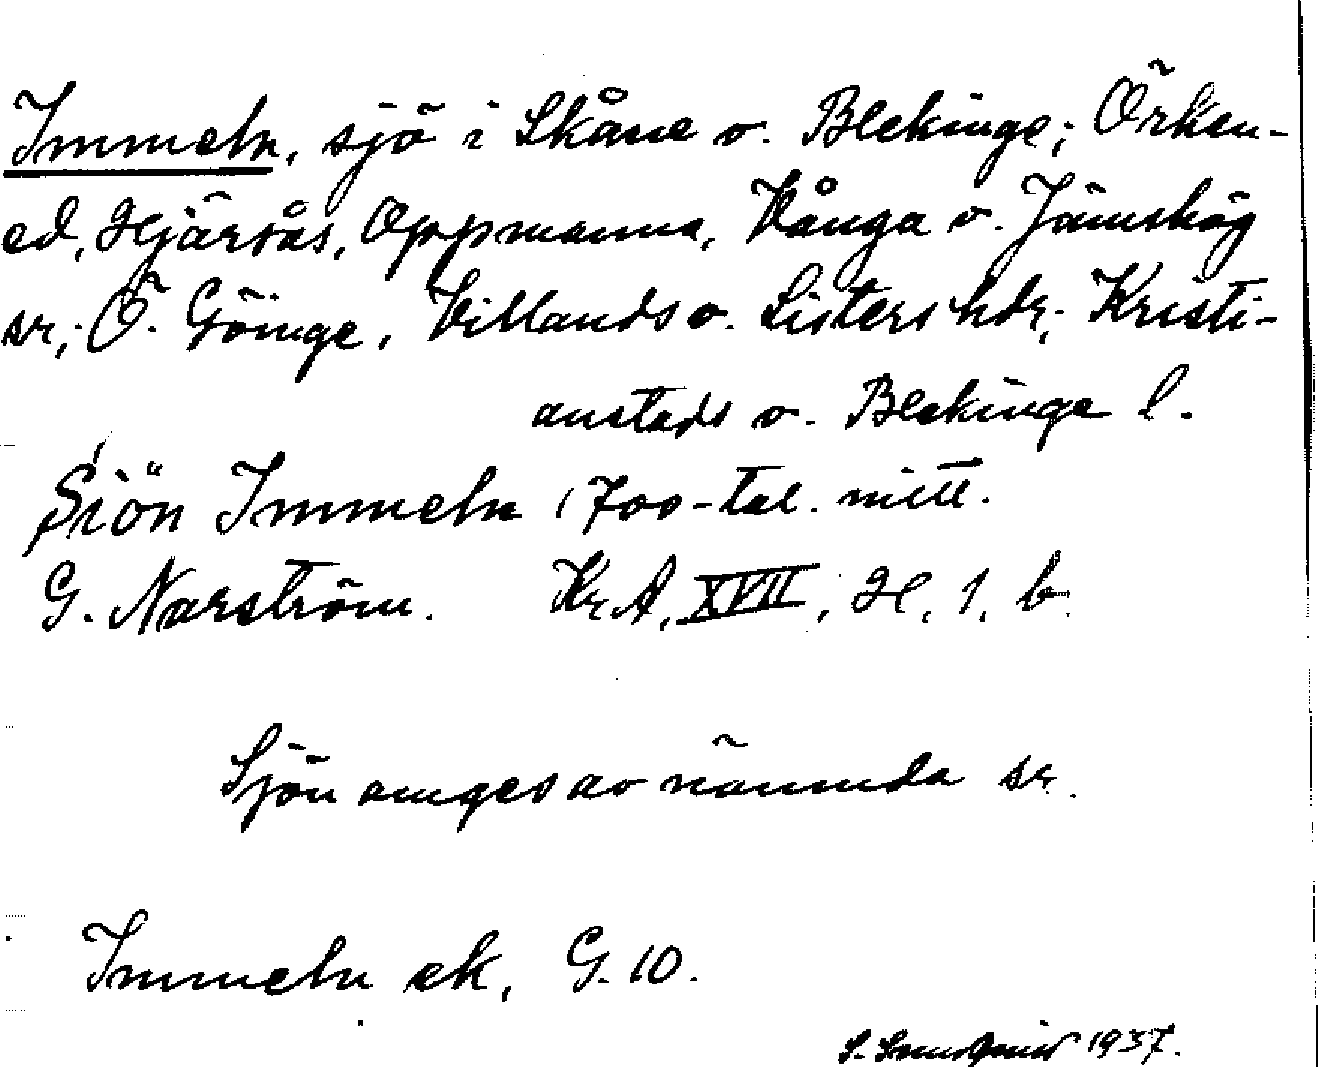 Immeln, sjö i Skåne o. Blekinge; Örken-
ed, Hjärsås, Oppmanna, Vånga o. Jämshög
sr; Ö. Göinge, Villands o. Listers hdr; Kristi-
anstads o. Blekinge l.
Siön Immeln 1700-tal. mitt.
G. Narström. KrA, XVII, H, 1, b.
Sjön omges av nämnda sr.
Immeln ek, G. 10.
S. 1937.